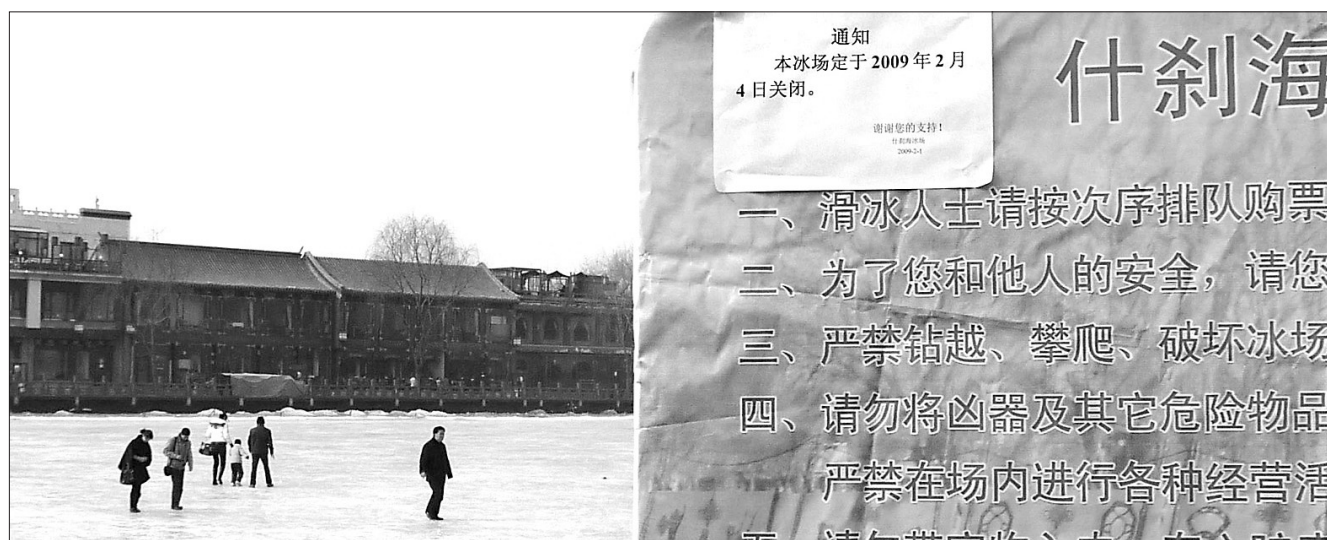 通知
本冰场定于2009年2月
4日关闭。
谢谢您的支持！
什刹海冰场
2009-2-1
什刹海
一、滑冰人士请按次序排队购票
二、为了您和他人的安全，请您
三、严禁钻越、攀爬、破坏冰场
四、请勿将凶器及其它危险物品
严禁在场内进行各种经营活